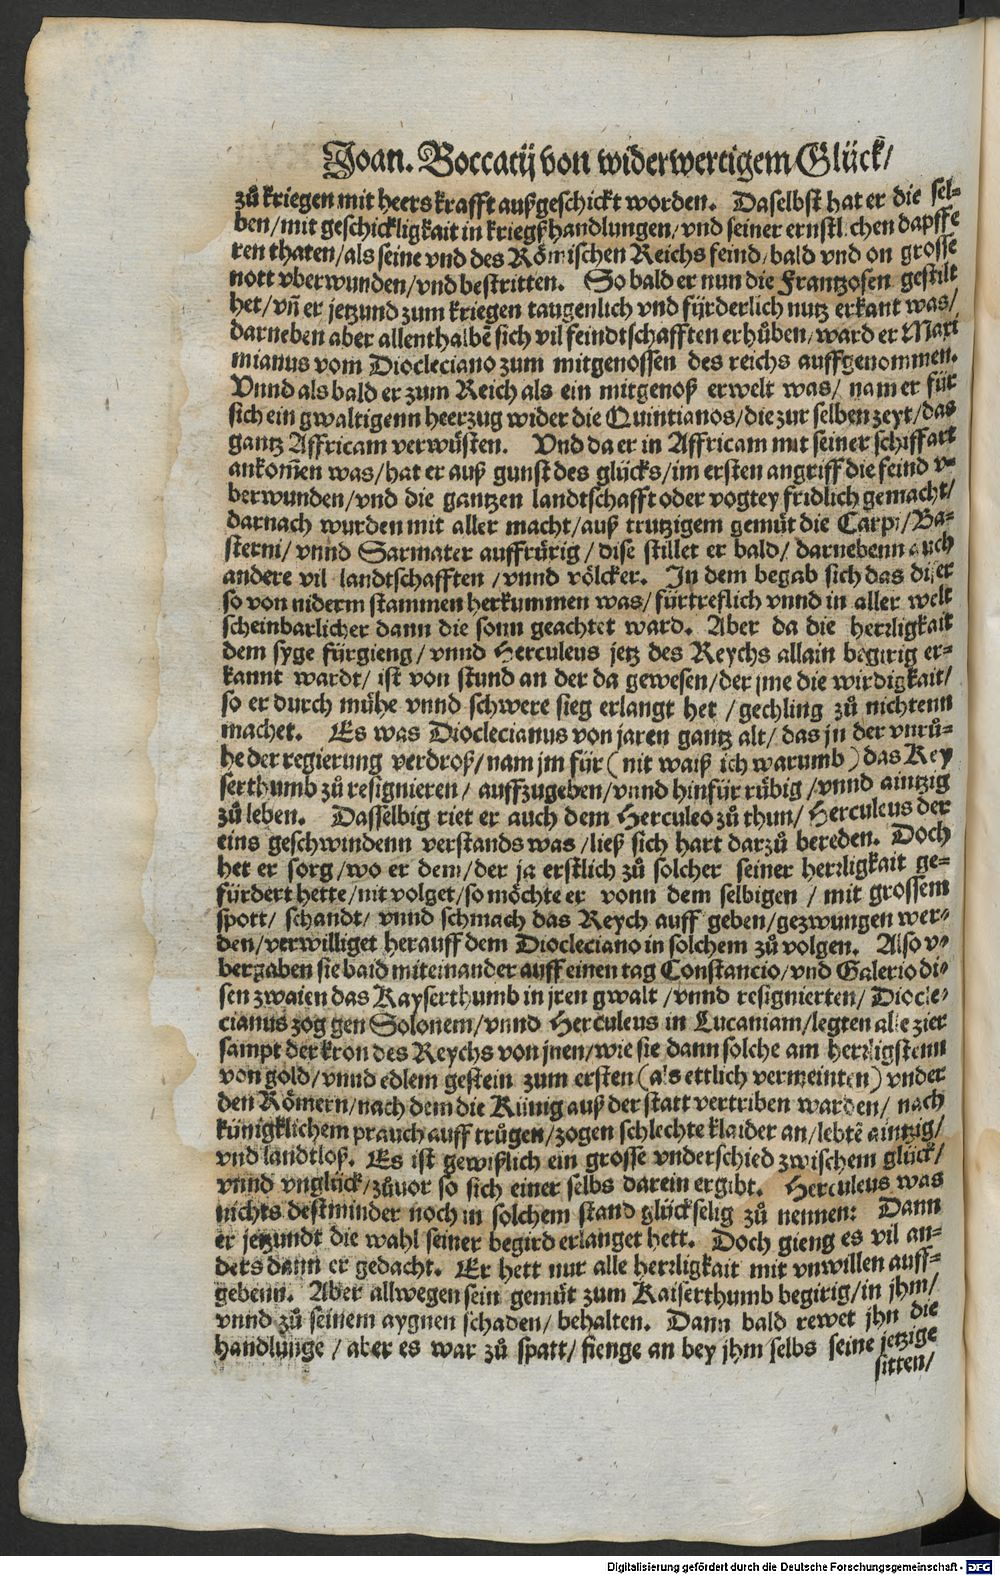 Joan. Boccatij von widerwertigem Glück/
zů kriegen mit heers krafft außgeschickt worden. Daselbst hat er die sel-
ben/mit geschickligkait in kriegßhandlungen/vnd seiner ernstlichen dapffe
ren thaten/als seine vnd des Römischen Reichs feind/bald vnd on grosse
nott vberwunden/vnd bestritten. So bald er nun die Frantzosen gestilt
het/vñ er jetzund zum kriegen taugenlich vnd fürderlich nutz erkant was/
darneben aber allenthalbẽ sich vil feindtschafften erhůben/ward er Maxi
mianus vom Diocleciano zum mitgenossen des reichs auffgenommen.
Vnnd als bald er zum Reich als ein mitgenoß erwelt was/ nam er für
sich ein gwaltigenn heerzug wider die Quintianos/die zur selben zeyt/das
gantz Affricam verwüsten. Vnd da er in Affricam mit seiner schiffart
ankom̃en was/hat er auß gunst des glücks/im ersten angriff die feind v-
berwunden/vnd die gantzen landtschafft oder vogtey fridlich gemacht/
darnach wurden mit aller macht/auß trutzigem gemüt die Carpi/Ba-
sterni/ vnnd Sarmater auffrürig/ dise stillet er bald/ darnebenn auch
andere vil landtschafften/vnnd völcker. In dem begab sich das diser
so von niderm stammen herkummen was/ fürtreflich vnnd in aller welt
scheinbarlicher dann die sonn geachtet ward. Aber da die herrligkait
dem syge fürgieng/ vnnd Herculeus jetz des Reychs allain begirig er-
kannt wardt/ ist von stund an der da gewesen/der jme die wirdigkait/
so er durch mühe vnnd schwere sieg erlangt het/gechling zů nichtenn
machet. Es was Dioclecianus von jaren gantz alt/ das jn der vnrů-
he der regierung verdroß/nam jm für (nit waiß ich warumb) das Key
serthumb zů resignieren/ auffzugeben/vnnd hinfür rübig/vnnd aintzig
zů leben. Dasselbig riet er auch dem Herculeo zů thun/ Herculeus der
eins geschwindenn verstands was/ließ sich hart darzů bereden. Doch
het er sorg/wo er dem/der ja erstlich zů solcher seiner herrligkait ge-
fürdert hette/nit volget/so möchte er vonn dem selbigen/ mit grossem
spott/ schandt/ vnnd schmach das Reych auff geben/gezwungen wer-
den/verwilliget herauff dem Diocleciano in solchem zů volgen. Also v-
bergaben sie baid miteinander auff einen tag Constancio/vnd Galerio di-
sen zwaien das Kayserthumb in jren gwalt/vnnd resignierten/ Diocle-
cianus zog gen Solonem/vnnd Herculeus in Lucaniam/legten alle zier
sampt der kron des Reychs von jnen/wie sie dann solche am herrligstenn
von gold/vnnd edlem gestein zum ersten (als ettlich vermeinten) vnder
den Römern/nach dem die Künig auß der statt vertriben warden/ nach
künigklichem prauch auff trůgen/zogen schlechte klaider an/lebtẽ aintzig/
vnd landtloß. Es ist gewißlich ein grosse vnderschied zwischem glück/
vnnd vnglück/zůuor so sich einer selbs darein ergibt. Herculeus was
nichts destminder noch in solchem stand glückselig zů nennen: Dann
er jetzundt die wahl seiner begird erlanget hett. Doch gieng es vil an-
ders dann er gedacht. Er hett nur alle herrligkait mit vnwillen auff-
gebenn. Aber allwegen sein gemüt zum Kaiserthumb begirig/in jhm/
vnnd zů seinem aygnen schaden/ behalten. Dann bald rewet jhn die
handlunge/ aber es war zů spatt/ fienge an bey jhm selbs seine jetzige
sitten/
Digitalisierung gefördert durch die Deutsche Forschungsgemeinschaft - DFG